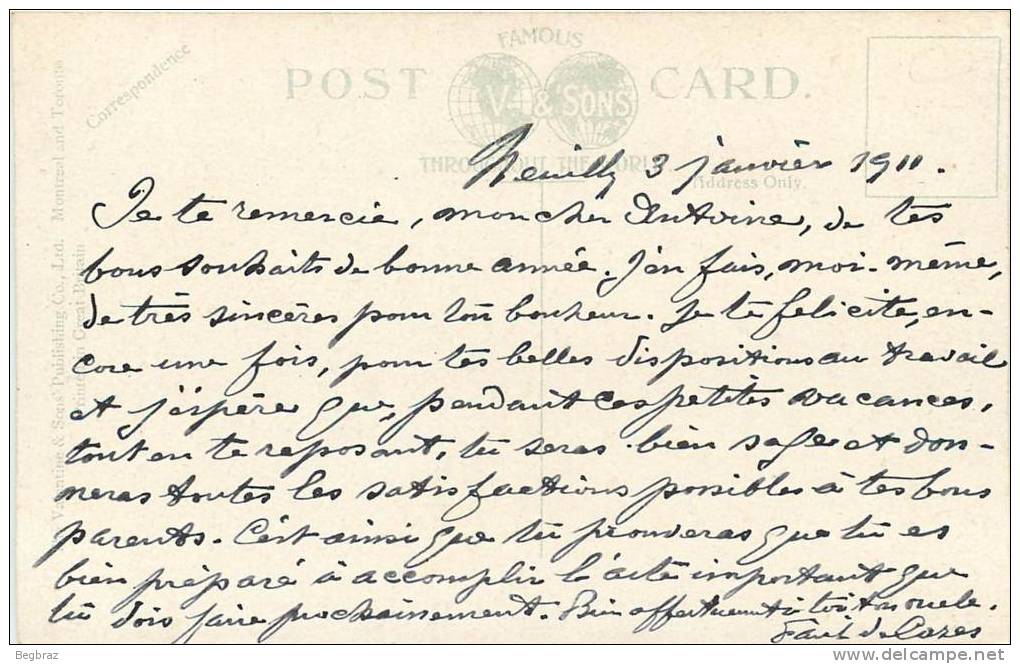 Correspondence
FAMOUS
POST CARD.
V & SONS
THROUGHOUT THE WORLD
Address Only.
Valentine & Sons' Publishing Co., Ltd. Montreal and Toronto
Printed in Great Britain
Neuilly 3 janvier 1911.
Je te remercie, mon cher Antoine, de tes
bons souhaits de bonne année. J'en fais, moi-même,
de très sincères pour ton bonheur. Je te felicite, en-
core une fois, pour tes belles dispositions au travail
et j'éspère que, pendant ces petites vacances,
tout en te reposant, tu seras bien sage et don-
neras toutes les satisfactions possibles à tes bons
parents. C'est ainsi que tu prouveras que tu es
bien préparé à accomplir l'acte important que
tu dois faire prochainement. Bien affectueusement à toi ton oncle.
de Cazes
Begbraz
www.delcampe.net